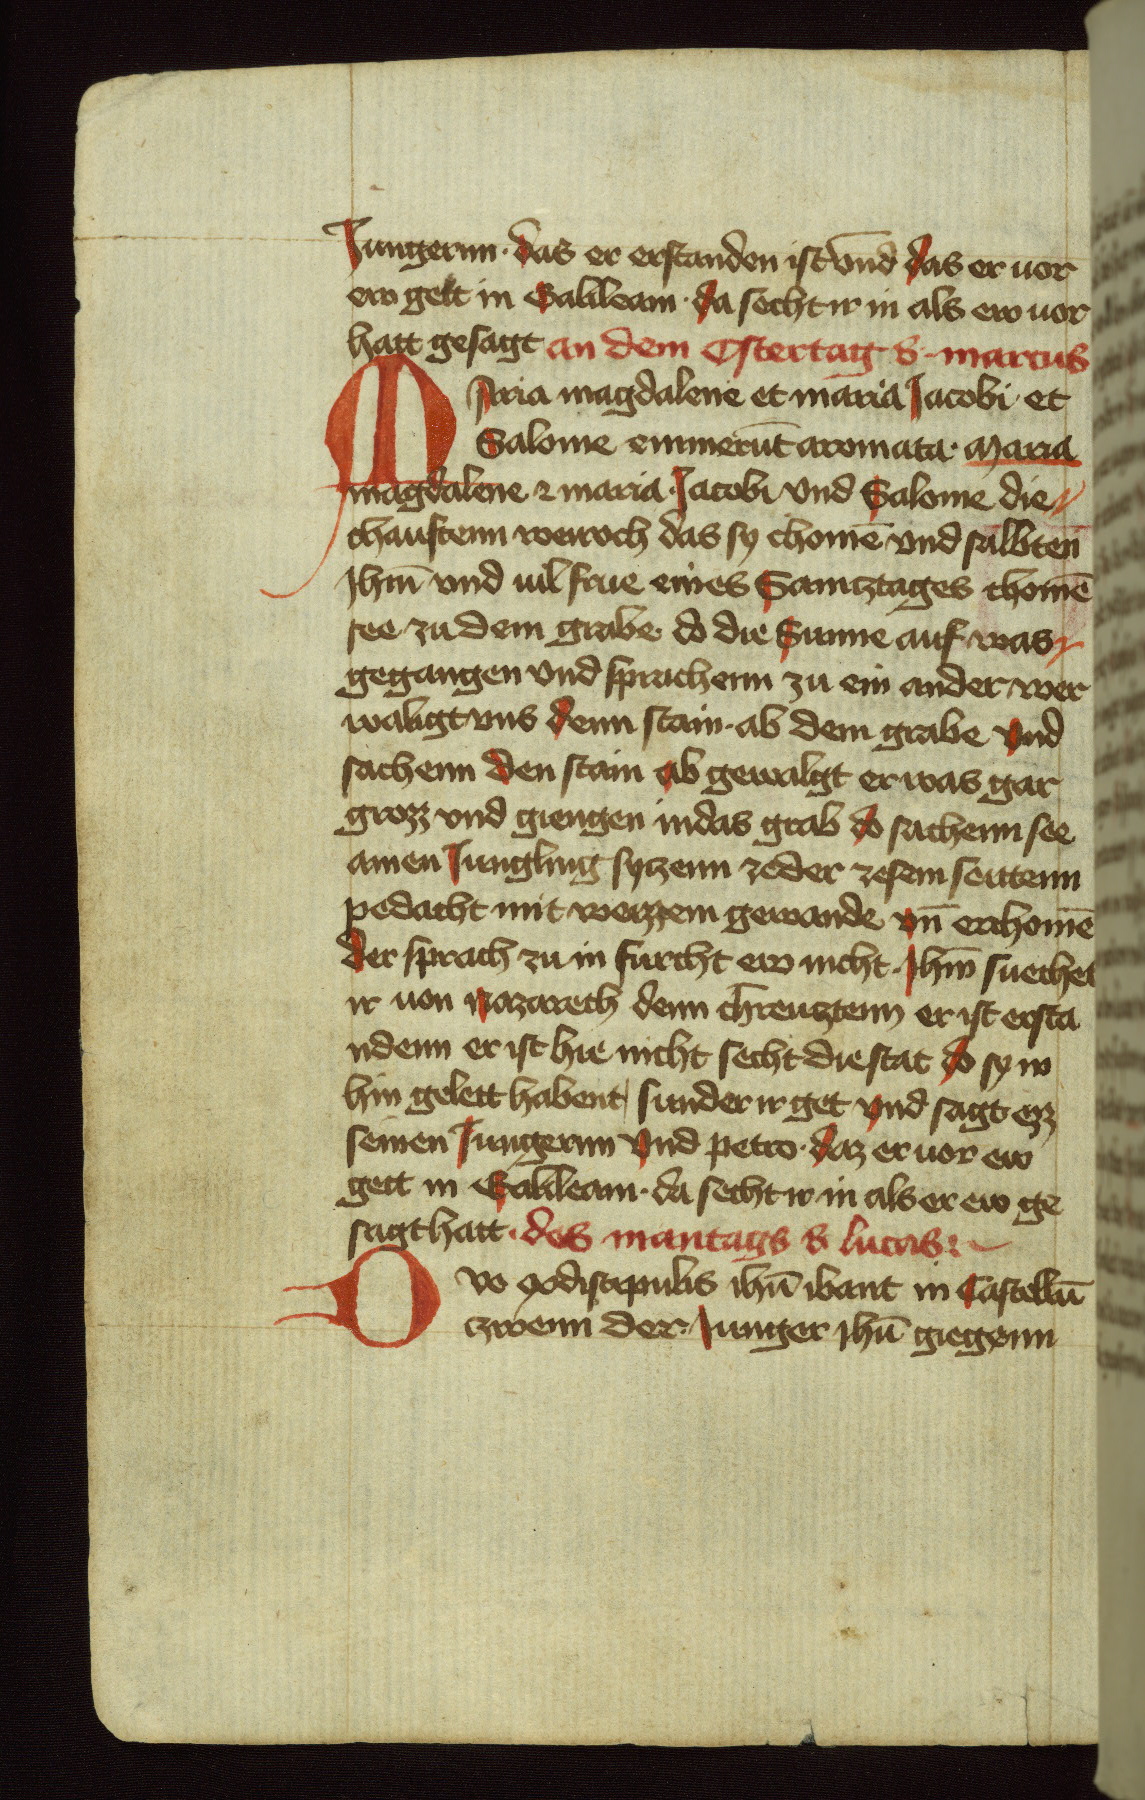 Jungernn · das er erstanden ist vnd das er uor
ew gett in Galileam · da secht ir in als ew uor
hatt gesagt an dem Ostertag S · marcus
Maria magdalene et maria Jacobi · et
Salome emmerūt aromata · Maria
magdalene z maria · Jacobi vnd Salome die
chauftenn weiroch das sy chomē vnd salbten
Jhm̄ vnd uil frue eines Samtztages chomē
see zu dem grabe do die Sunne auf was
gegangen vnd sprachenn zu ein ander wer
waligt vns denn stain · ab dem grabe vnd
sachenn den stain ab gewalgt er was gar
grozz vnd giengen in das grab do sachenn see
ainen Jungling sytzenn ze der zesem seittenn
pedacht mit weizzem gewande vn̄ erchomē
der sprach zu in furcht ew nicht · Jhm̄ suechet
ir uon nazareth denn chreutztenn er ist ersta
ndenn er ist hie nicht secht die stat do sy in
hin gelett habent sunder ir get vnd sagt ezz
seinen Jungernn vnd petro · daz er uor ew
gett in Galileam · da secht ir in als er ew ge
sagt hatt · des mantags S lucas :
Dvo ex discipulis ihū ibant in Castellū
zwenn der · Junger jhū giegenn